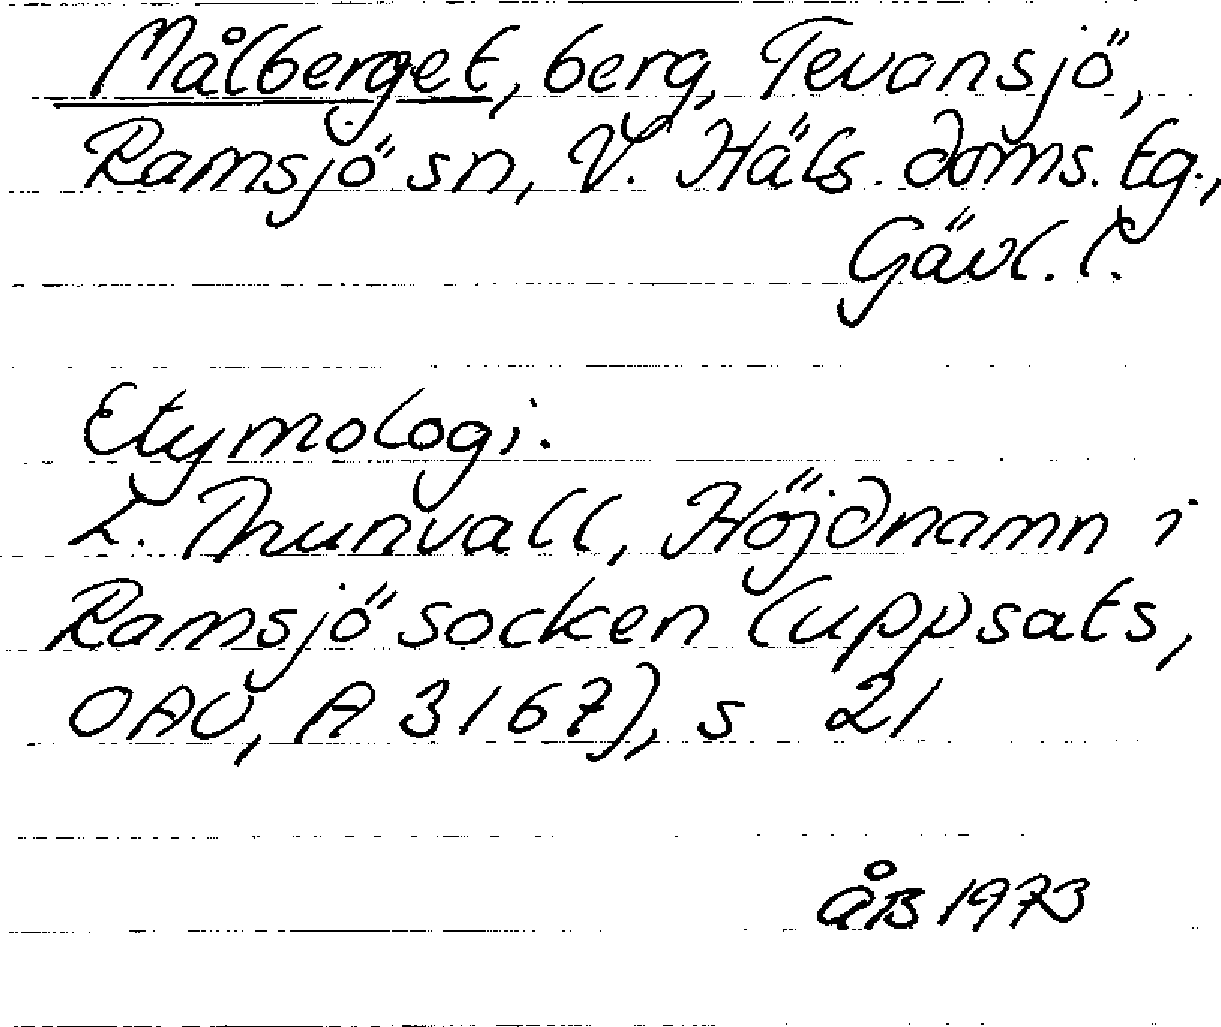 Målberget, berg, Tevansjö,
Ramsjö sn, V. Häls. doms. tg.,
Gävl. l.
Etymologi.
L. Thunvall, Höjdnamn i
Ramsjö socken (uppsats,
OAU, A 3167), s 21
åB 1973